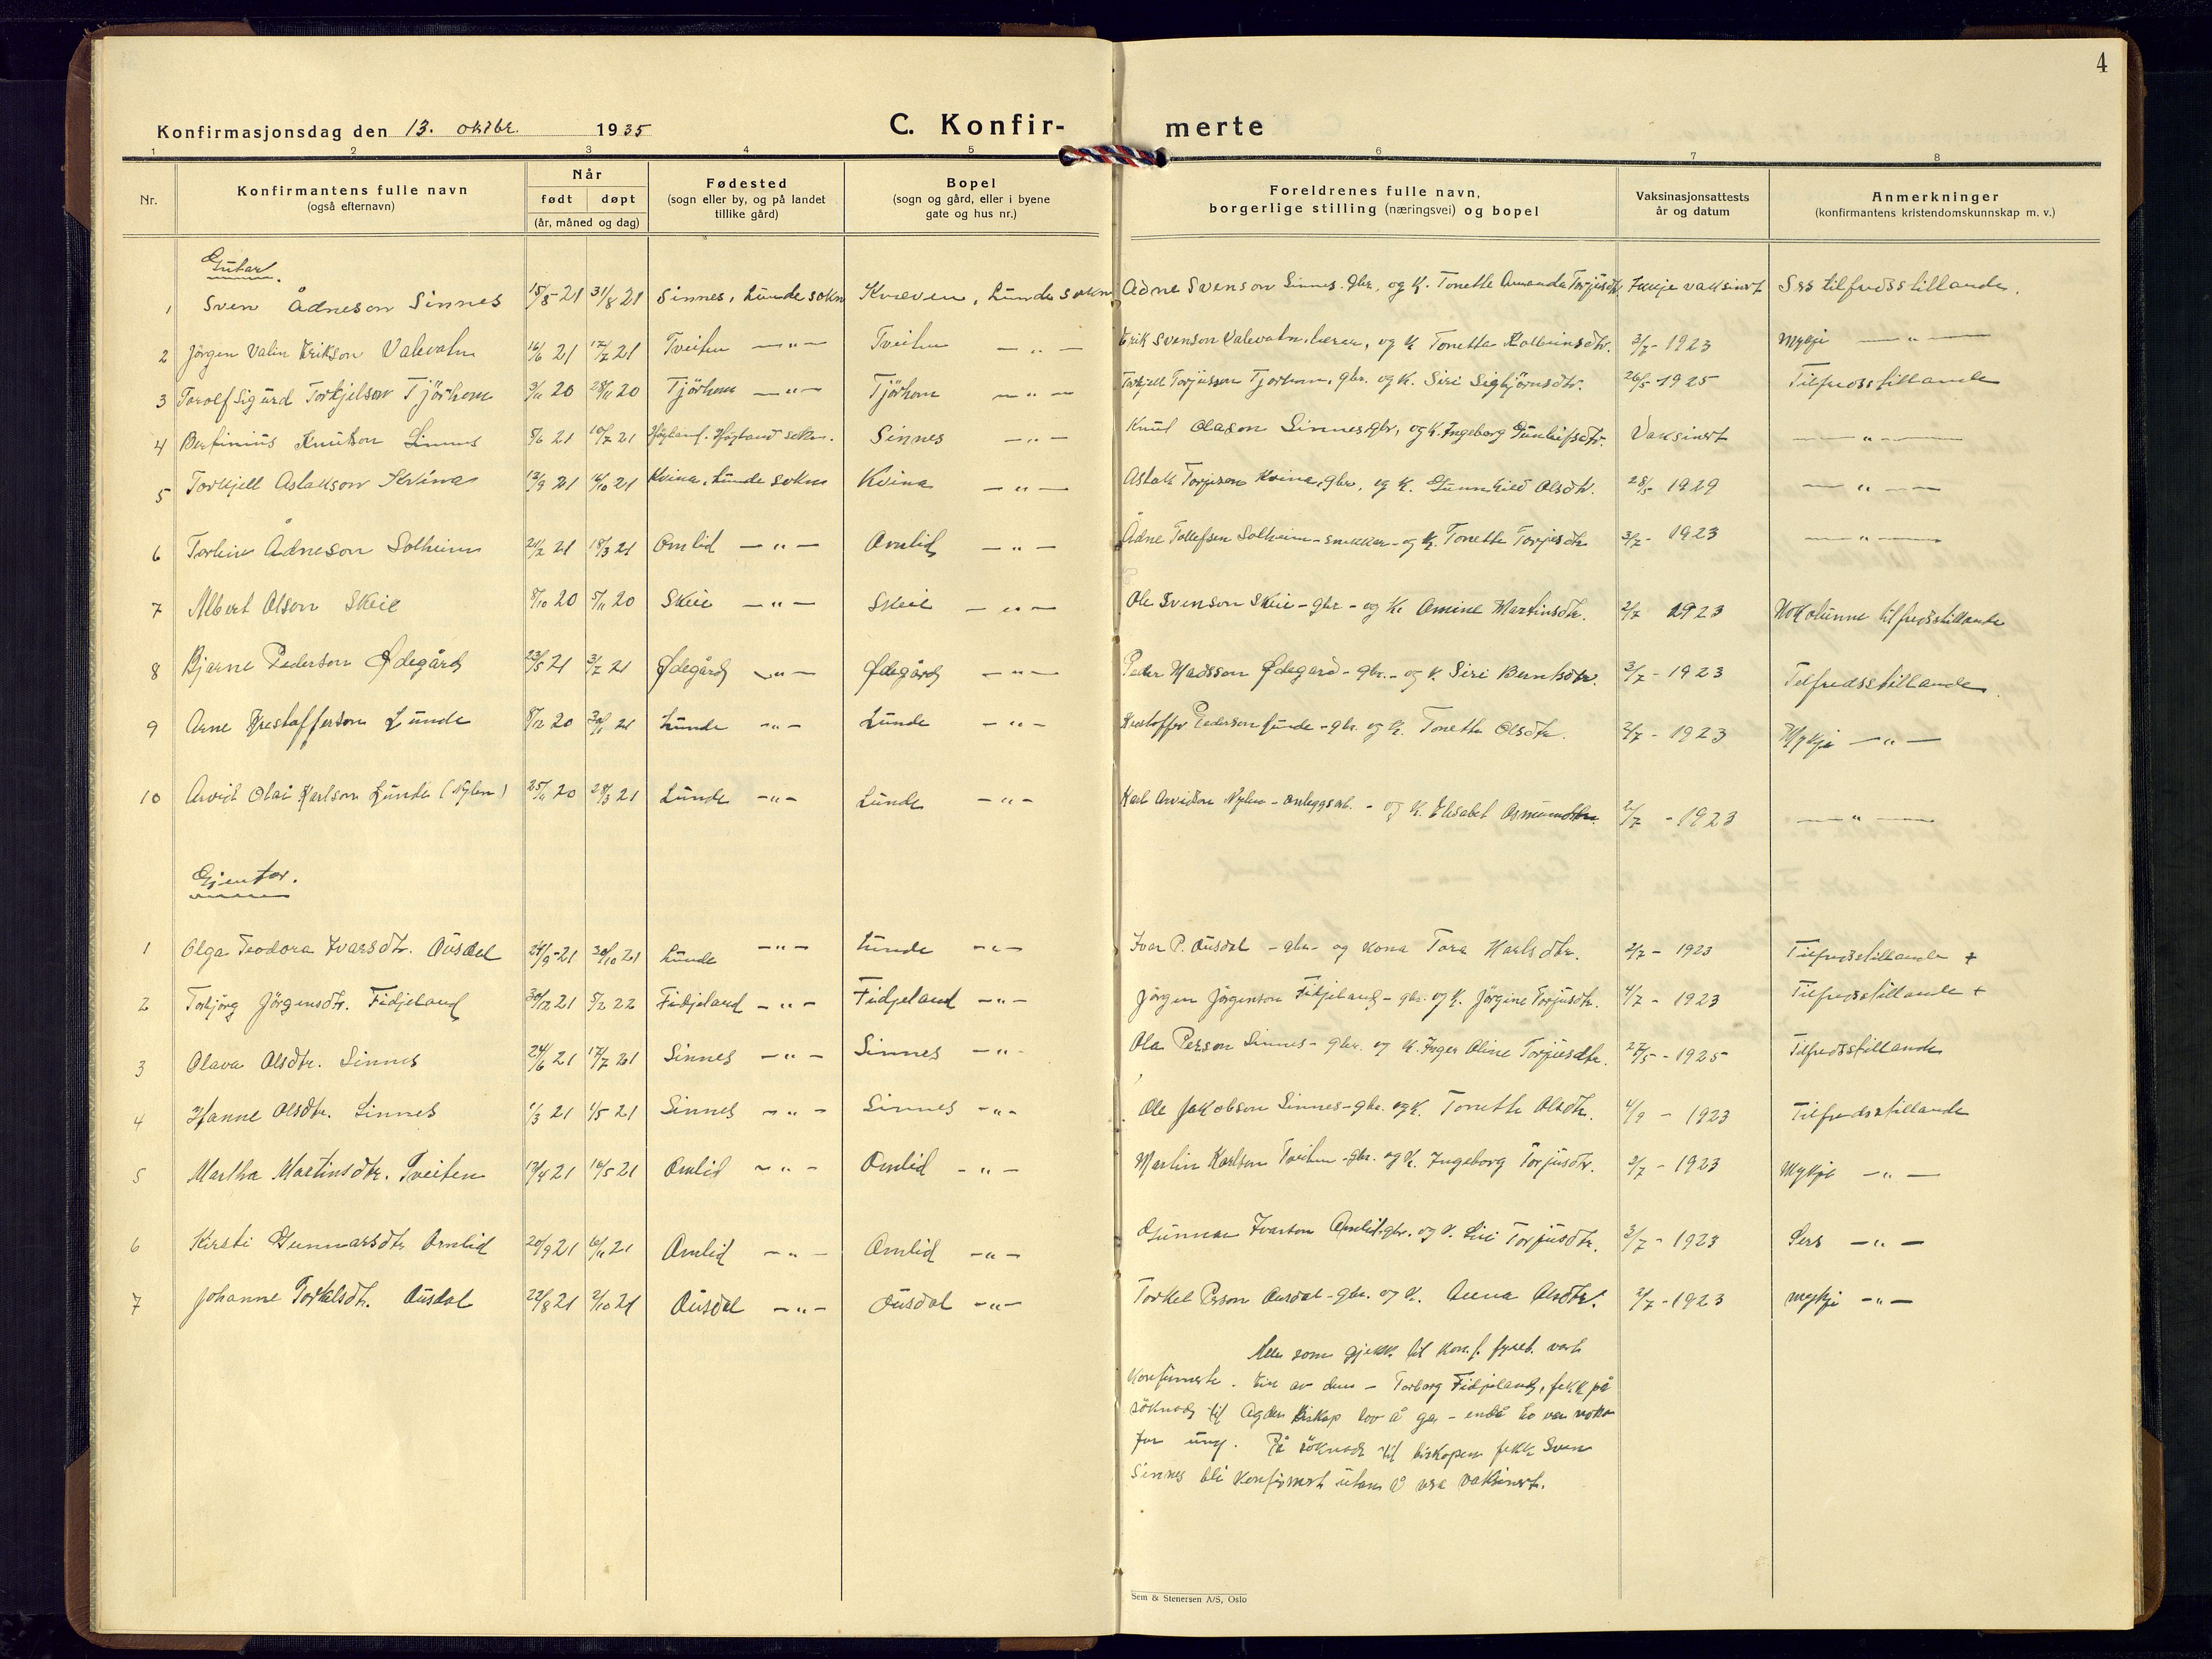 4
Konfirmasjonsdag den 13. oktbr. 1935 C. Konfir- merte
1 2 3 4 5 6 7 8
Nr. Konfirmantens fulle navn (også efternavn) Når født døpt (år, måned og dag) Fødested (sogn eller by, og på landet tillike gård) Bopel (sogn og gård, eller i byene gate og hus nr.) Foreldrenes fulle navn, borgerlige stilling (næringsvei) og bopel Vaksinasjonsattests år og datum Anmerkninger (konfirmantens kristendomskunnskap m. v.)
Gutar.
1 Sven Ådneson Sinnes 15/5 21 31/8 21 Sinnes, Lunde sokn Kvæven, Lunde sokn Ådne Svenson Sinnes. gbr. og K. Tonette Amanda Torjusdtr. Ikkje vaksinert Sers tilfredsstillande.
2 Jörgen Valin Erikson Valevatn 16/6 21 17/7 21 Tveiten —"— Tveiten —"— Erik Svenson Valevatn, lærar, og K. Tonette Kolbeinsdtr. 3/7 - 1923 Mykje —"—
3 Torolf Sigurd Torkjelson Tjörhom 9/11 20 28/11 20 Tjörhom —"— Tjörhom —"— Torkjell Torjusson Tjorhom, gbr. og K. Siri Sigbjörnsdtr. 26/5 - 1925 Tilfredsstillande
4 Bertinius Knutson Sinnes 8/6 21 10/7 21 Högland. Högland sokn. Sinnes —"— Knut Olason Sinnes, gbr, og K. Ingeborg Gunleifsdtr. Vaksinert —"—
5 Torkjell Aslakson Kvina 12/9 21 16/10 21 Kvina, Lunde sokn Kvina —"— Aslak Torjeson Kvina, gbr, og K. Gunnhild Olsdtr. 28/5 - 1929 —"—
6 Torleiv Ådneson Solheim 21/2 21 18/3 21 Omlid —"— Omlid —"— Ådne Tollefsen Solheim - snekkar - og K. Tonette Torjesdtr 3/7 - 1923 —"—
7 Albert Olson Skeie 8/10 20 5/11 20 Skeie —"— Skeie —"— Ole Svenson Skeie - gbr - og K. Amine Martinsdtr. 2/7 1923 Nokolunne tilfredsstillande
8 Bjarne Pederson Ødegård 23/5 21 3/7 21 Ødegård —"— Ødegård —"— Peder Madsson Ødegard - gbr. - og K. Siri Berntsdtr. 3/7 - 1923 Tilfredsstillande.
9 Arne Kristofferson Lunde 8/12 20 30/1 21 Lunde —"— Lunde —"— Kristoffer Pederson Lunde - gbr. og K. Tonette Olsdtr. 2/7 - 1923 Mykje —"—
10 Arvid Olai Karlson Lunde (Nylen) 25/11 20 28/3 21 Lunde —"— Lunde —"— Karl Arvidson Nylen - anleggsarb. - og K. Elisabet Osmundsdtr. 2/7 - 1923 —"—
Gjentor.
1 Olga Teodora Ivarsdtr. Ousdal 24/9 -21 30/10 21 Lunde —"— Lunde —"— Ivar P. Ousdal - gbr - og kona Tora Karlsdtr. 2/7 - 1923 Tilfredsstillande +
2 Torbjörg Jörgensdtr. Fidjeland 30/12 21 5/2 22 Fidjeland —"— Fidjeland —"— Jörgen Jörgenson Fidjeland - gbr. og K. Jörgine Torjusdtr. 4/7 - 1923 Tilfredsstillande +
3 Olava Olsdtr. Sinnes 24/6 21 17/7 21 Sinnes —"— Sinnes —"— Ola Person Sinnes - gbr. og K. Inger Oline Torjusdtr. 27/5 - 1925 Tilfredsstillande
4 Hanne Olsdtr. Sinnes 1/3 21 1/5 21 Sinnes —"— Sinnes —"— Ole Jakobson Sinnes - gbr. og K. Tonette Olsdtr. 4/9 - 1923 Tilfredsstillande
5 Martha Martinsdtr. Tveiten 17/4 21 16/5 21 Omlid —"— Omlid —"— Martin Karlson Tveiten - gbr. og K. Ingeborg Torjusdtr. 2/7 - 1923 Mykje —"—
6 Kirsti Gunnarsdtr Omlid 20/9 21 6/11 21 Omlid —"— Omlid —"— Gunnar Ivarson Omlid - gbr. og K. Siri Torjusdtr. 3/7 - 1923 Sers —"—
7 Johanne Torkelsdtr. Ousdal 22/8 21 2/10 21 Ousdal —"— Ousdal —"— Torkel Person Ousdal - gbr. og K. Anna Olsdtr. 2/7 - 1923 mykje —"—
Alle som gjekk til konf. fyreb. vart
konfirmerte. Ein av deim - Torborg Fidjeland, fekk på
söknad til Agder biskop lov å gå - endå ho var noko
for ung. På söknad til biskopen fekk Sven
Sinnes bli konfirmert utan å vera vaksinert.
Sem & Stenersen A/S, Oslo